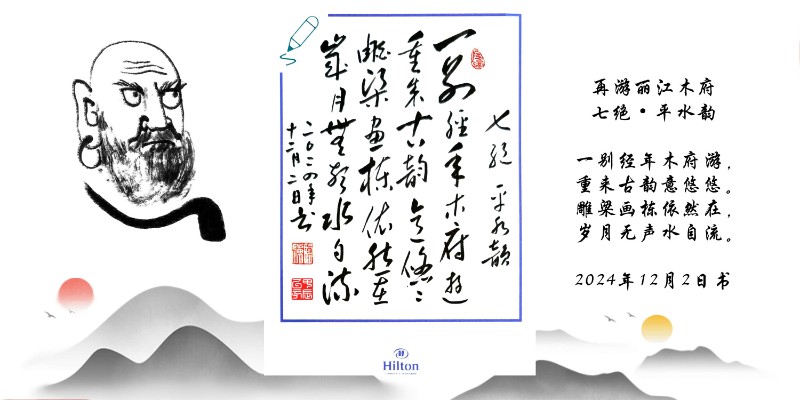 七絕 平水韻
一别經年木府遊
重来古韻意悠々
雕梁畫棟依然在
歲月無聲水自流
二〇二四年
十二月二日书
Hilton
再游丽江木府
七绝·平水韵
一别经年木府游，
重来古韵意悠悠。
雕梁画栋依然在，
岁月无声水自流。
2024年12月2日书